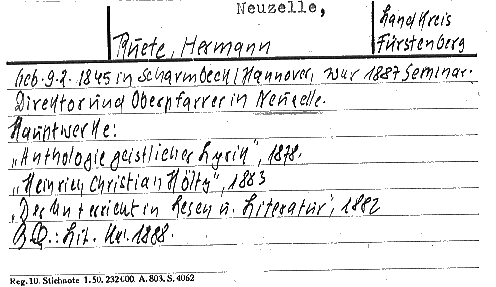 Neuzelle,
Landkreis
Fürstenberg
Ruete, Hermann
Geb. 9.2. 1845 in Scharmbeck/Hannover, war 1887 Seminar-
Direktor und Oberpfarrer in Neuzelle.
Hauptwerke:
„Anthologie geistlicher Lyrik", 1878.
„Heinrich Christian Hölty", 1883
„Der Unterricht in Lesen u. Literatur", 1882
Lit. 1888.
Reg. 10. Stichnote 1. 50. 232000. A. 803. S. 4062